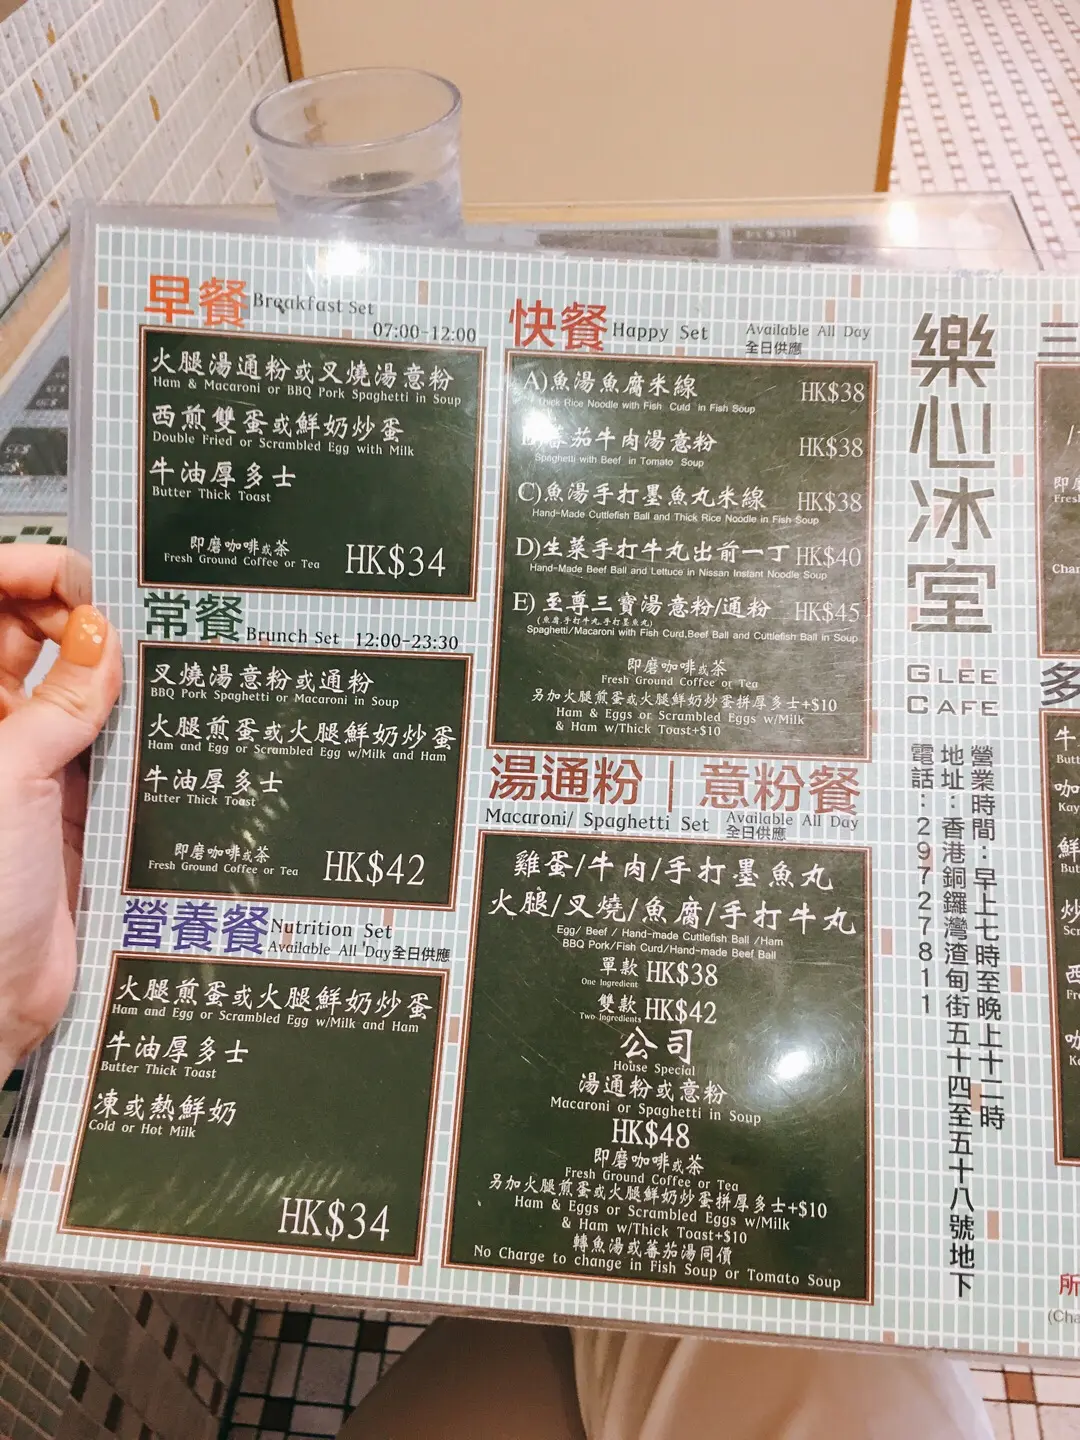 早餐 Breakfast Set
07:00-12:00
火腿湯通粉或叉燒湯意粉
Ham & Macaroni or BBQ Pork Spaghetti in Soup
西煎雙蛋或鮮奶炒蛋
Double Fried or Scrambled Egg with Milk
牛油厚多士
Butter Thick Toast
即磨咖啡或茶
Fresh Ground Coffee or Tea
HK$34
常餐 Brunch Set 12:00-23:30
叉燒湯意粉或通粉
BBQ Pork Spaghetti or Macaroni in Soup
火腿煎蛋或火腿鮮奶炒蛋
Ham and Egg or Scrambled Egg w/Milk and Ham
牛油厚多士
Butter Thick Toast
即磨咖啡或茶
Fresh Ground Coffee or Tea
HK$42
營養餐 Nutrition Set
Available All Day 全日供應
火腿煎蛋或火腿鮮奶炒蛋
Ham and Egg or Scrambled Egg w/Milk and Ham
牛油厚多士
Butter Thick Toast
凍或熱鮮奶
Cold or Hot Milk
HK$34
快餐 Happy Set
Available All Day
全日供應
A)魚湯魚腐米線 HK$38
Thick Rice Noodle with Fish Cuid in Fish Soup
蕃茄牛肉湯意粉 HK$38
Spaghetti with Beef in Tomato Soup
C)魚湯手打墨魚丸米線 HK$38
Hand-Made Cuttlefish Ball and Thick Rice Noodle in Fish Soup
D)生菜手打牛丸出前一丁 HK$40
Hand-Made Beef Ball and Lettuce in Nissan Instant Noodle Soup
E) 至尊三寶湯意粉/通粉 HK$45
(魚腐,手打牛丸,手打墨魚丸)
Spaghetti/Macaroni with Fish Curd,Beef Ball and Cuttlefish Ball in Soup
即磨咖啡或茶
Fresh Ground Coffee or Tea
另加火腿煎蛋或火腿鮮奶炒蛋拼厚多士+$10
Ham & Eggs or Scrambled Eggs w/Milk
& Ham w/Thick Toast+$10
湯通粉｜意粉餐
Macaroni/ Spaghetti Set
Available All Day
全日供應
雞蛋/牛肉/手打墨魚丸
火腿/叉燒/魚腐/手打牛丸
Egg/ Beef / Hand-made Cuttlefish Ball /Ham
BBQ Pork/Fish Curd/Hand-made Beef Ball
單款 HK$38
One Ingredient
雙款 HK$42
Two Ingredients
公司
House Special
湯通粉或意粉
Macaroni or Spaghetti in Soup
HK$48
即磨咖啡或茶
Fresh Ground Coffee or Tea
另加火腿煎蛋或火腿鮮奶炒蛋拼厚多士+$10
Ham & Eggs or Scrambled Eggs w/Milk
& Ham w/Thick Toast+$10
轉魚湯或蕃茄湯同價
No Charge to change in Fish Soup or Tomato Soup
樂心冰室
GLEE
CAFE
營業時間：早上七時至晚上十二時
地址：香港銅鑼灣渣甸街五十四至五十八號地下
電話：29727811
三
即
Fres
多
牛
Butt
咖
Kay
鮮
But
炒
Scr
西
咖
所
(Cha